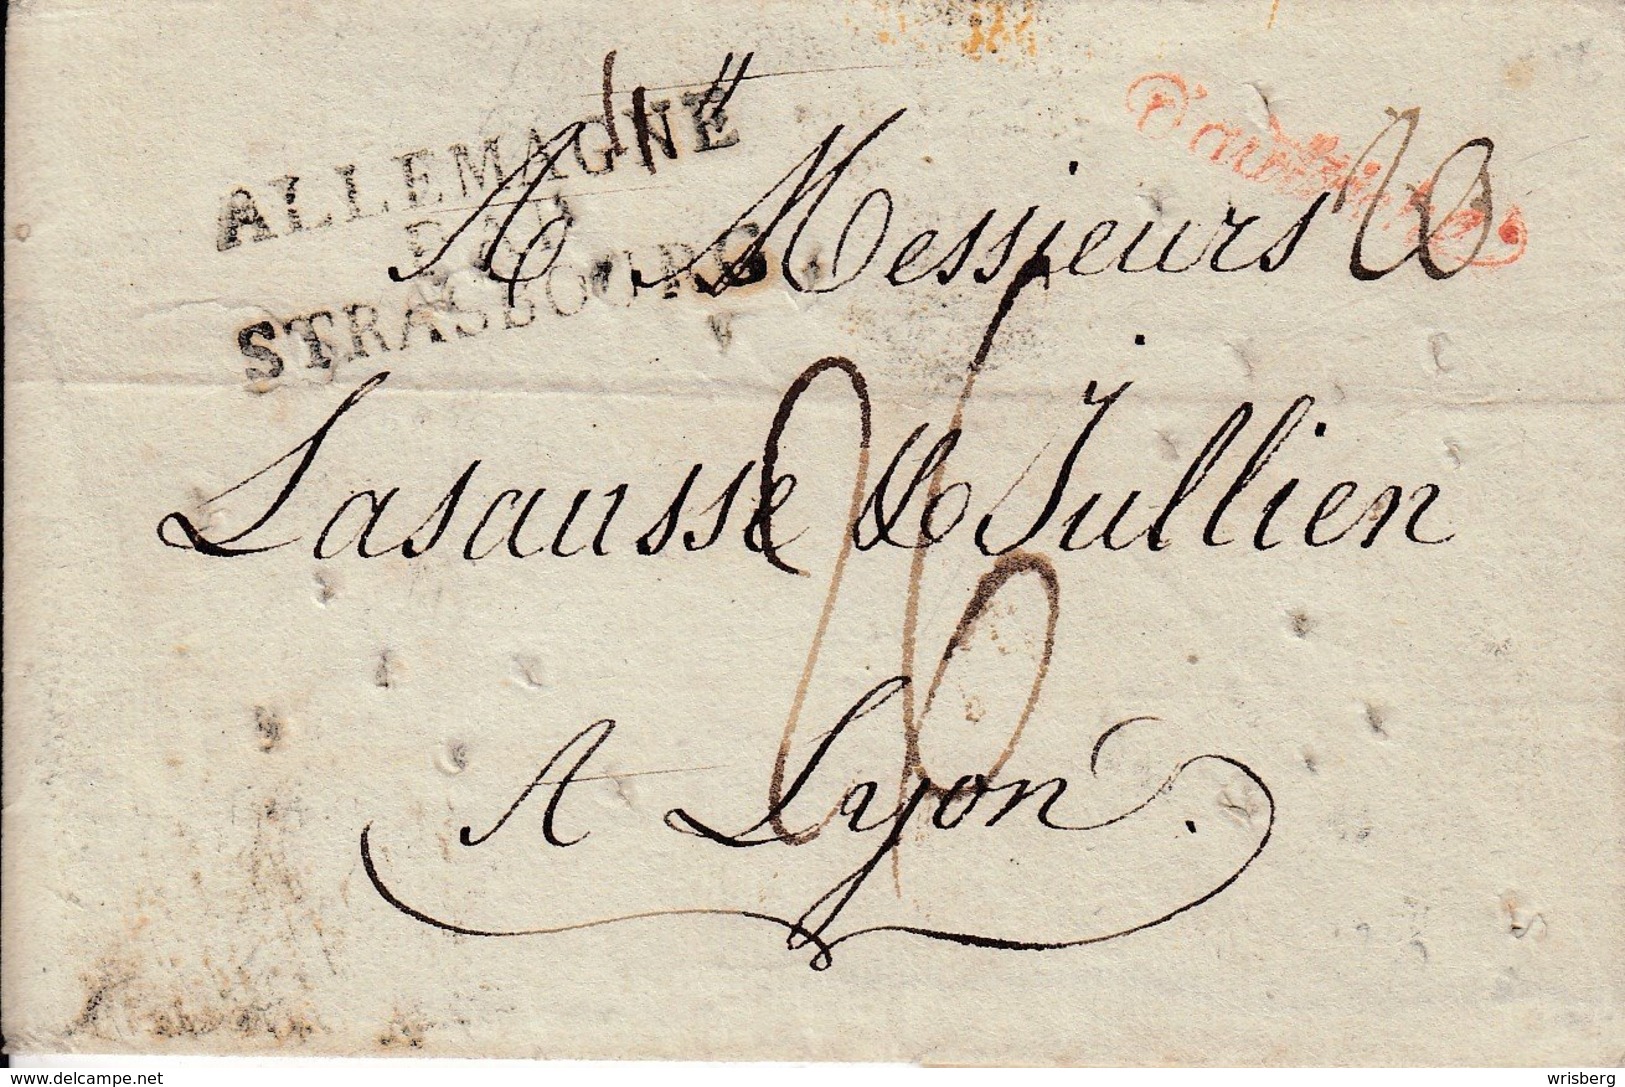 ALLEMAGNE
PAR
STRASBOURG
A Messieurs
Lasausse & Jullien
A Lyon.
26
www.delcampe.net
wrisberg